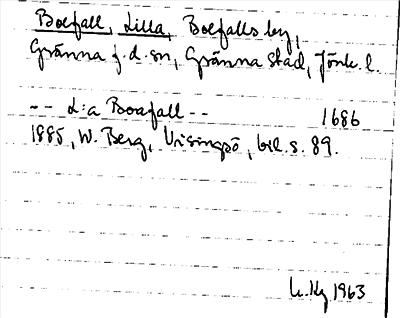 Boefall, Lilla, Boefalls by,
Gränna f.d. sn, Gränna stad, Jönk. l.
-- L:a Boafall -- 1686
1885, W. Berg, Visingsö, bil. s. 89.
1963